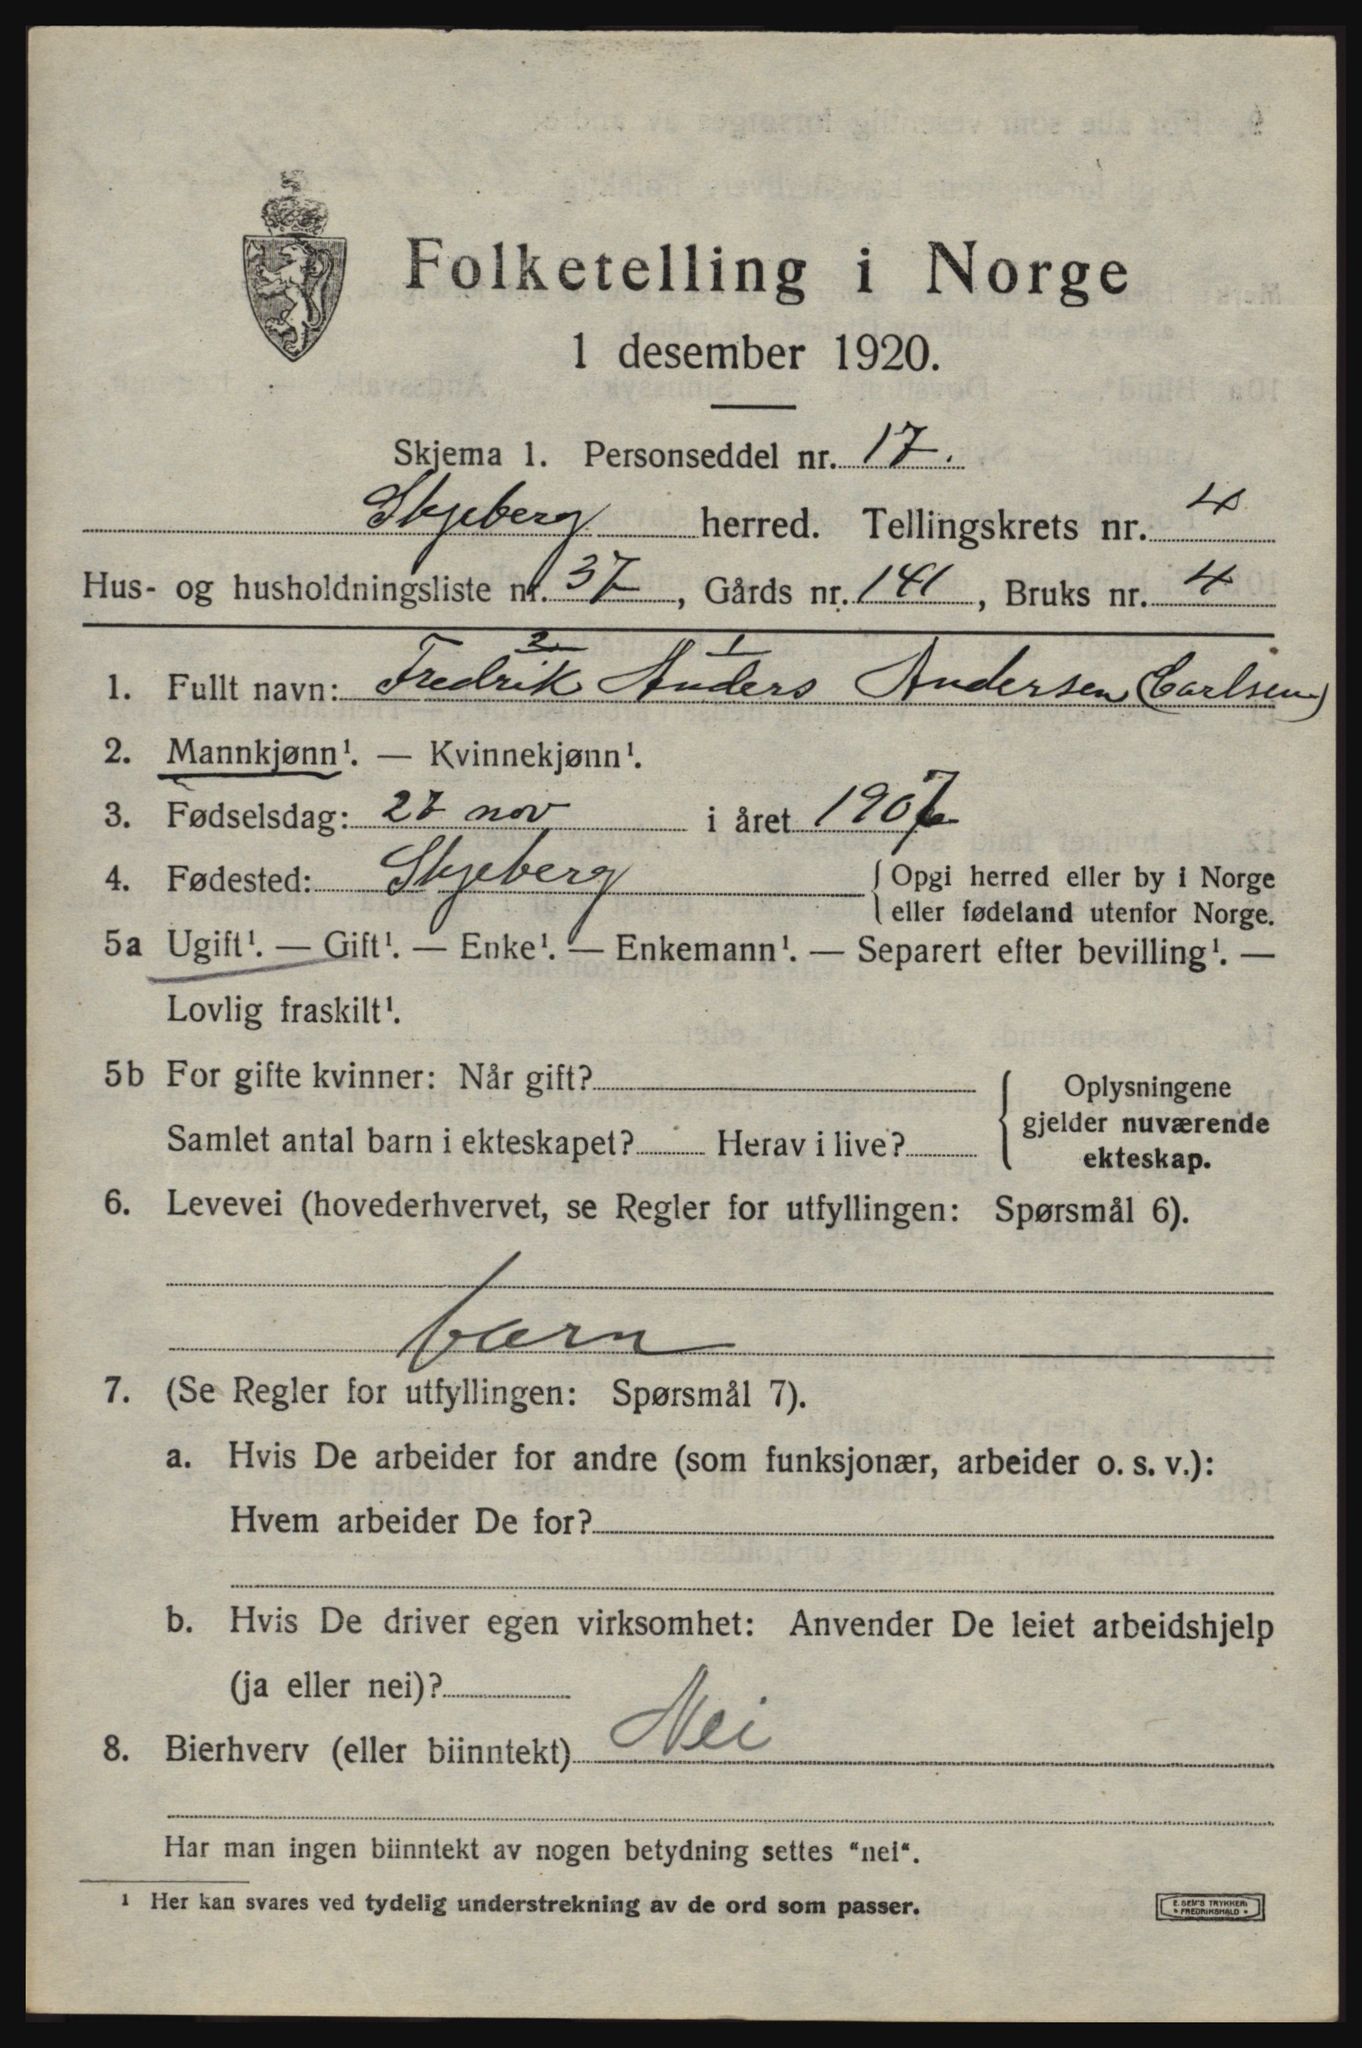 Folketelling i Norge
1 desember 1920.
Skjema 1. Personseddel nr. 17.
Skjeberg herred. Tellingskrets nr. 4
Hus- og husholdningsliste nr. 37, Gårds nr. 141, Bruks nr. 4
2 1
1. Fullt navn: Fredrik Anders Andersen (Carlsen)
2. Mannkjønn¹. — Kvinnekjønn¹.
3. Fødselsdag: 27 nov i året 1907
4. Fødested: Skjeberg { Opgi herred eller by i Norge
eller fødeland utenfor Norge.
5a Ugift¹. — Gift¹. — Enke¹. — Enkemann¹. — Separert efter bevilling¹. —
Lovlig fraskilt¹.
5b For gifte kvinner: Når gift? { Oplysningene
gjelder nuværende
Samlet antal barn i ekteskapet? Herav i live?
ekteskap.
6. Levevei (hovederhvervet, se Regler for utfyllingen: Spørsmål 6).
barn
7. (Se Regler for utfyllingen: Spørsmål 7).
a. Hvis De arbeider for andre (som funksjonær, arbeider o. s. v.):
Hvem arbeider De for?
b. Hvis De driver egen virksomhet: Anvender De leiet arbeidshjelp
(ja eller nei)?
8. Bierhverv (eller biinntekt) Nei
Har man ingen biinntekt av nogen betydning settes "nei".
¹ Her kan svares ved tydelig understrekning av de ord som passer.
E. SEM'S TRYKKERI
FREDRIKSHALD